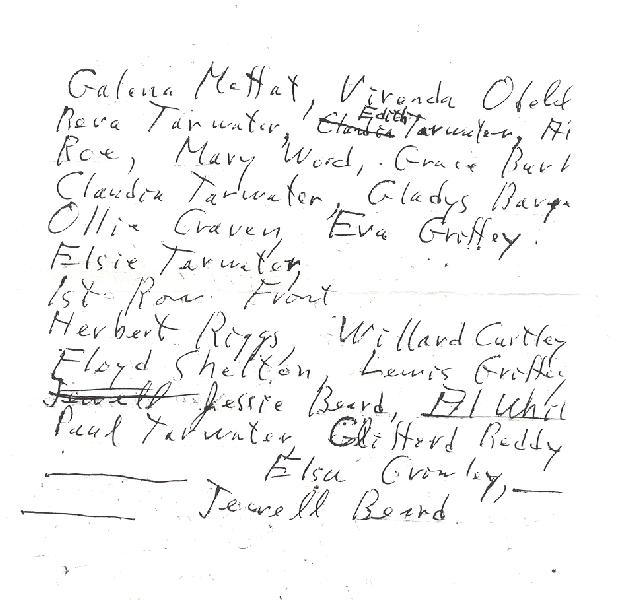 Galena Moffat, Virenda Ofeld
Reva Tarwater, Claudia Edith Tarwater, Al
Roe, Mary Word, Grace Burk
Claudia Tarwater, Gladys Barge
Ollie Craven, Eva Griffey.
Elsie Tarwater,
1st Row Front
Herbert Riggs, Willard Curtley
Floyd Shelton, Lewis Griffey
Jewell Jessie Beard, Al Whit
Paul Tarwater, Clifford Reddy
Elsa Crowley,
Jewell Beard